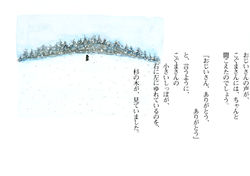 おじいさんの声が、
こてまさんには、ちゃんと
聞こえたのでしょう。
「おじいさん、ありがとう。
ありがとう」
と、言うように、
こてまさんの
小さいしっぽが、
右に左にゆれているのを、
杉の木が、見ていました。